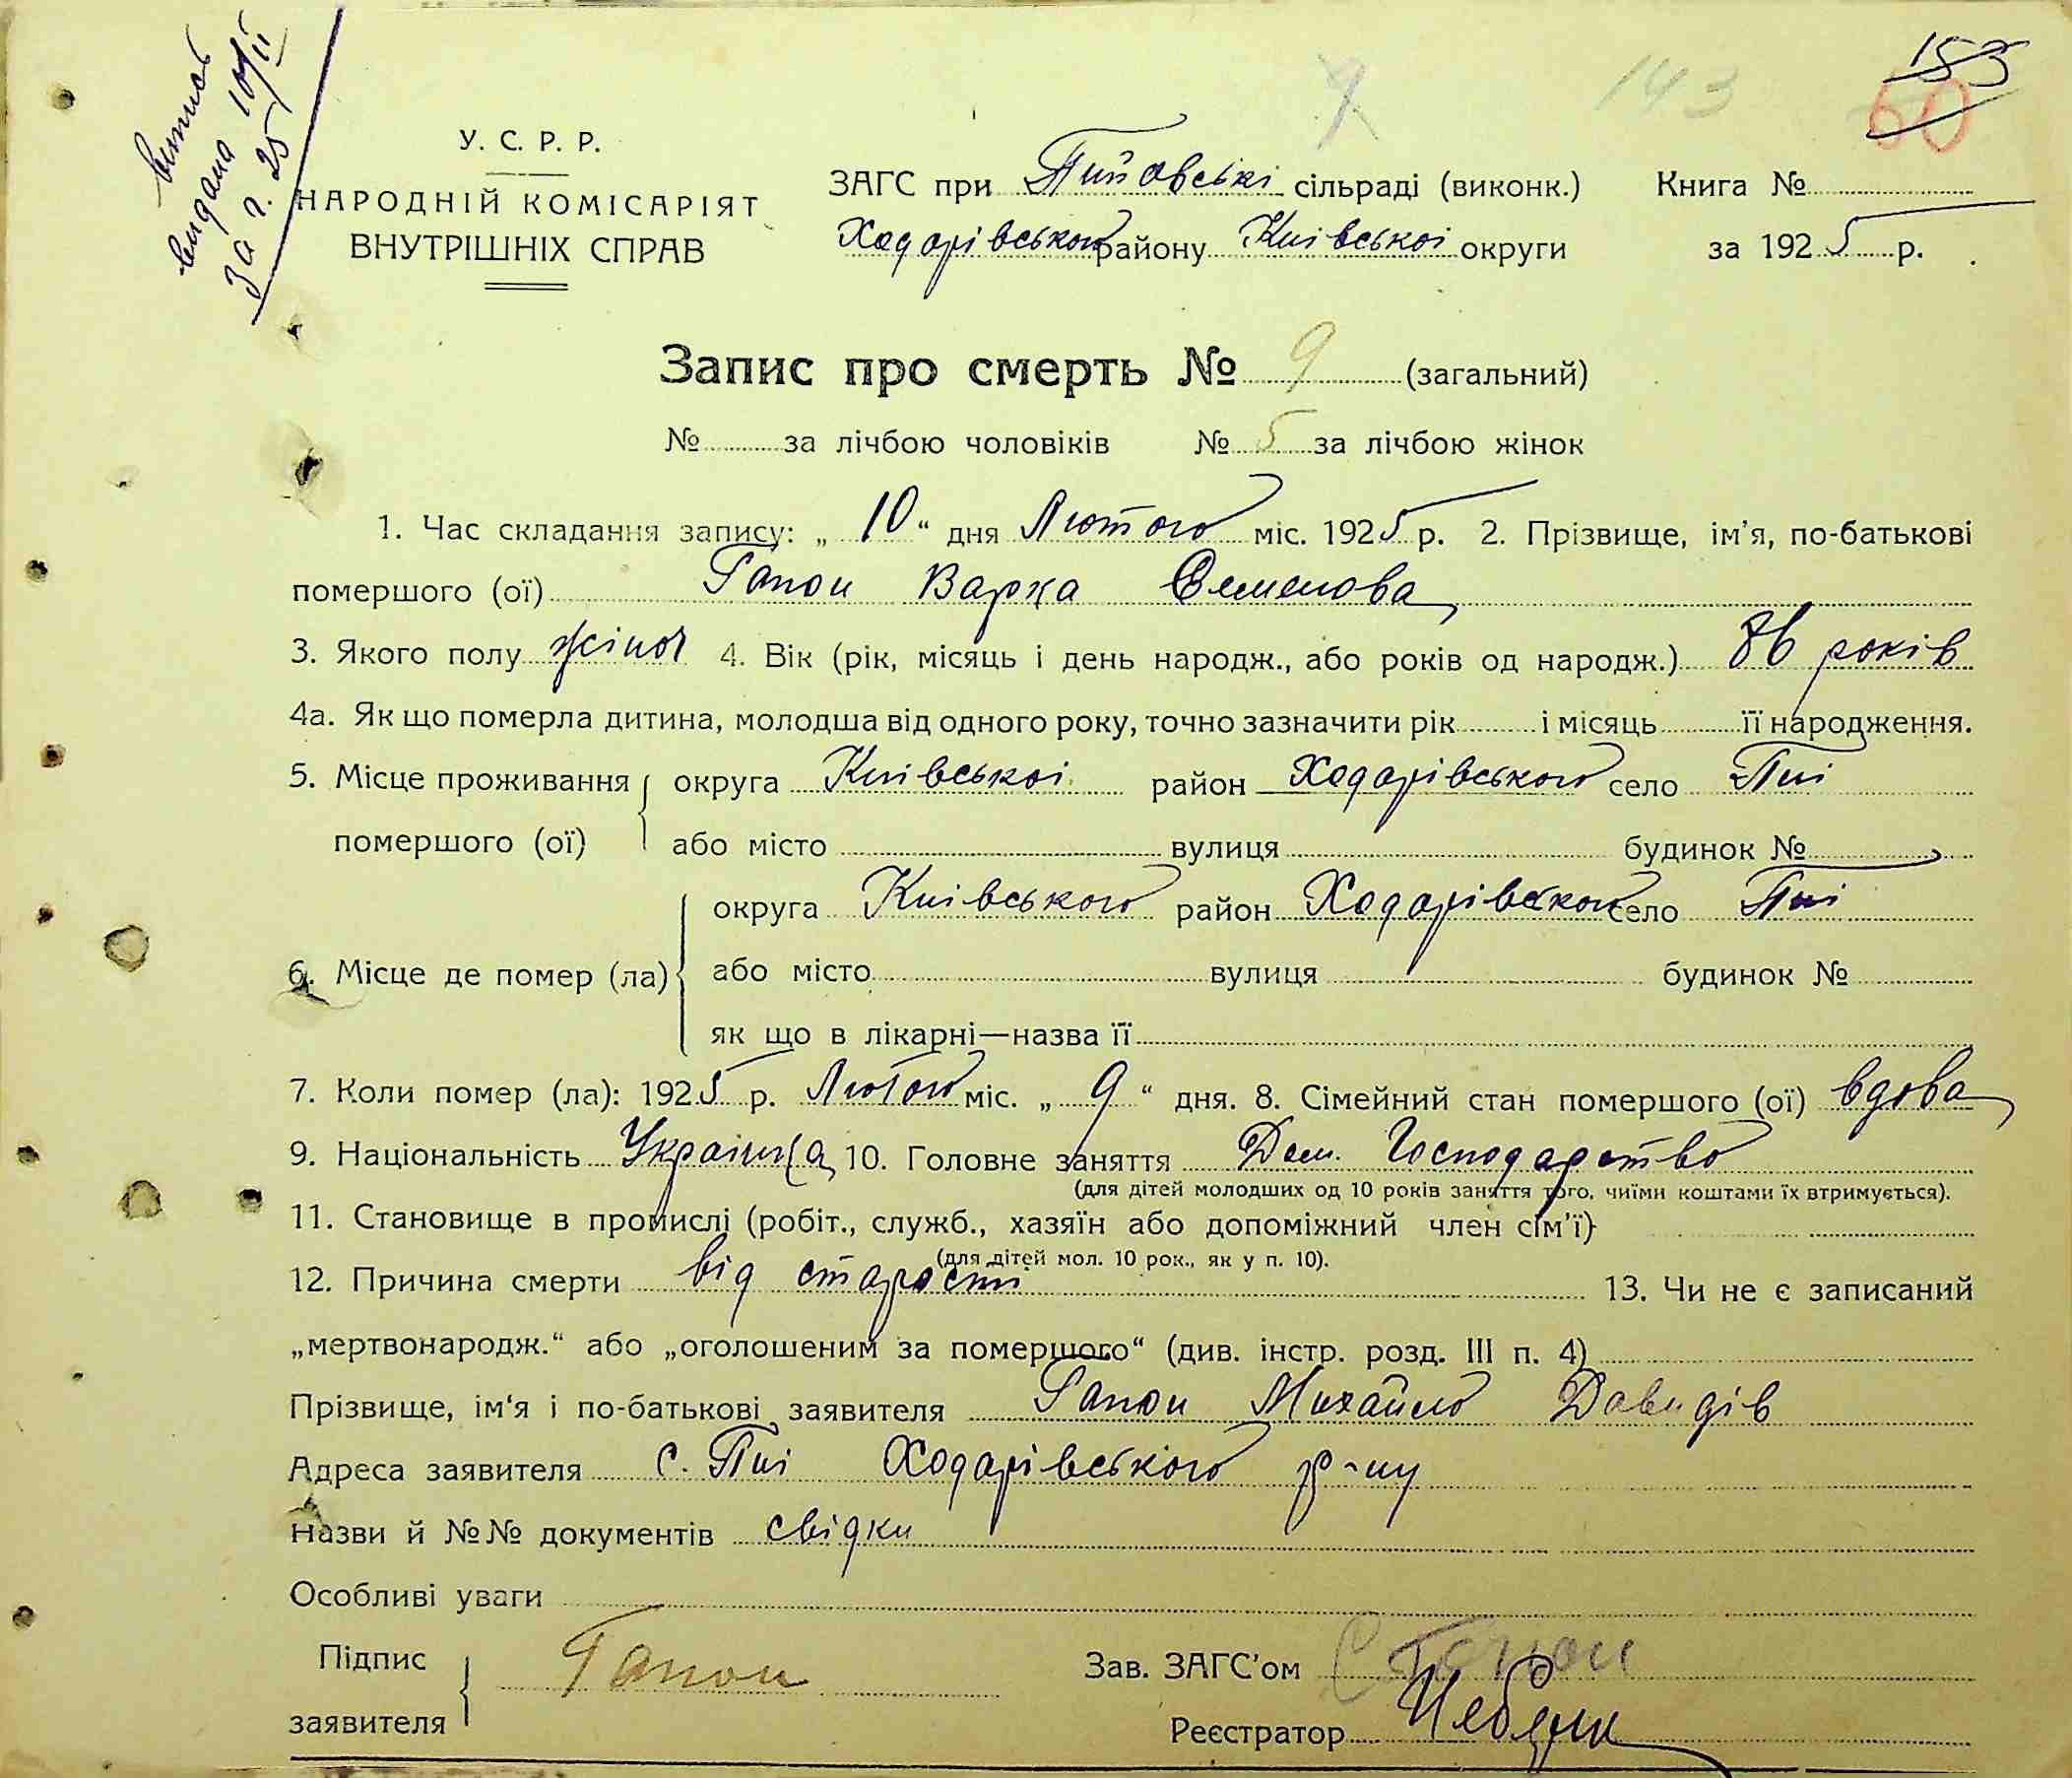 випись
видана 10/ІІ
за г. 25
7
143
153
60
У. С. Р. Р.
НАРОДНІЙ КОМІСАРІЯТ
ВНУТРІШНІХ СПРАВ
ЗАГС при Пиївські сільраді (виконк.) Книга №
Ходарівського району Київської округи за 1925 р.
Запис про смерть № 9 (загальний)
№ за лічбою чоловіків № 5 за лічбою жінок
1. Час складання запису: „ 10 “ дня Лютого міс. 1925 р. 2. Прізвище, ім’я, по-батькові
помершого (ої) Гапон Варка Семенова
3. Якого полу жіноч 4. Вік (рік, місяць і день народж., або років од народж.) 86 років
4а. Як що померла дитина, молодша від одного року, точно зазначити рік і місяць її народження.
5. Місце проживання помершого (ої) округа Київськоі район Ходарівського село Пиі
або місто вулиця будинок №
6. Місце де помер (ла) округа Київського район Ходарівського село Пиі
або місто вулиця будинок №
як що в лікарні—назва її
7. Коли помер (ла): 1925 р. Лютого міс. „ 9 “ дня. 8. Сімейний стан помершого (ої) вдова
9. Національність Українка 10. Головне заняття Дом. Господарство
(для дітей молодших од 10 років заняття того, чиїми коштами їх втримується).
11. Становище в промислі (робіт., служб., хазяїн або допоміжний член сім’ї)
(для дітей мол. 10 рок., як у п. 10).
12. Причина смерти від старости 13. Чи не є записаний
„мертвонародж.“ або „оголошеним за помершого“ (див. інстр. розд. III п. 4)
Прізвище, ім‘я і по-батькові заявителя Гапон Михайло Давидів
Адреса заявителя с. Пиі Ходарівського р-ну
Назви й №№ документів свідки
Особливі уваги
Підпис заявителя Гапон Зав. ЗАГС’ом С Гапон
Реєстратор